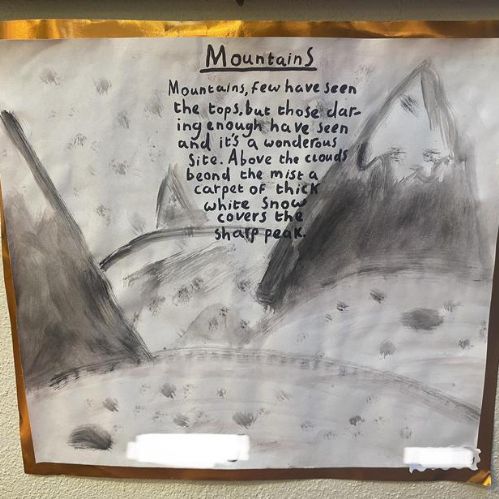 Mountains
Mountains, few have seen
the tops, but those dar-
ing enough have seen
and it's a wonderous
site. Above the clouds
beond the mist a
carpet of thick
white snow
covers the
sharp peak.